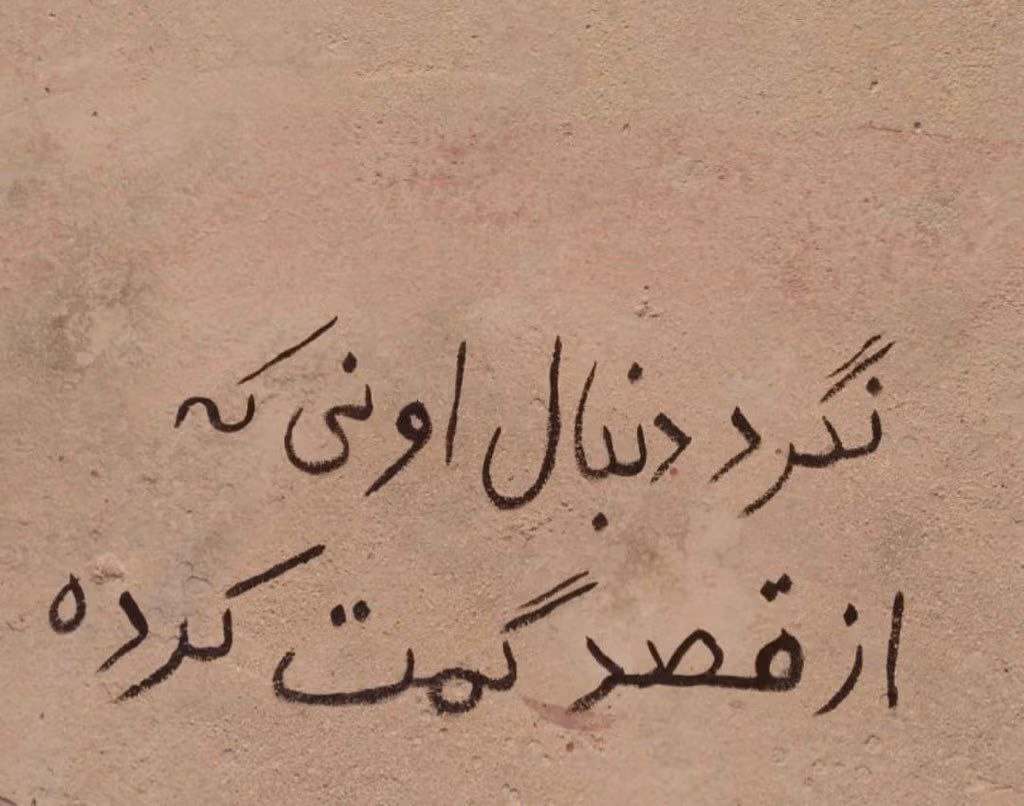 نگرد دنبال اونی که
از قصد گمت کرده